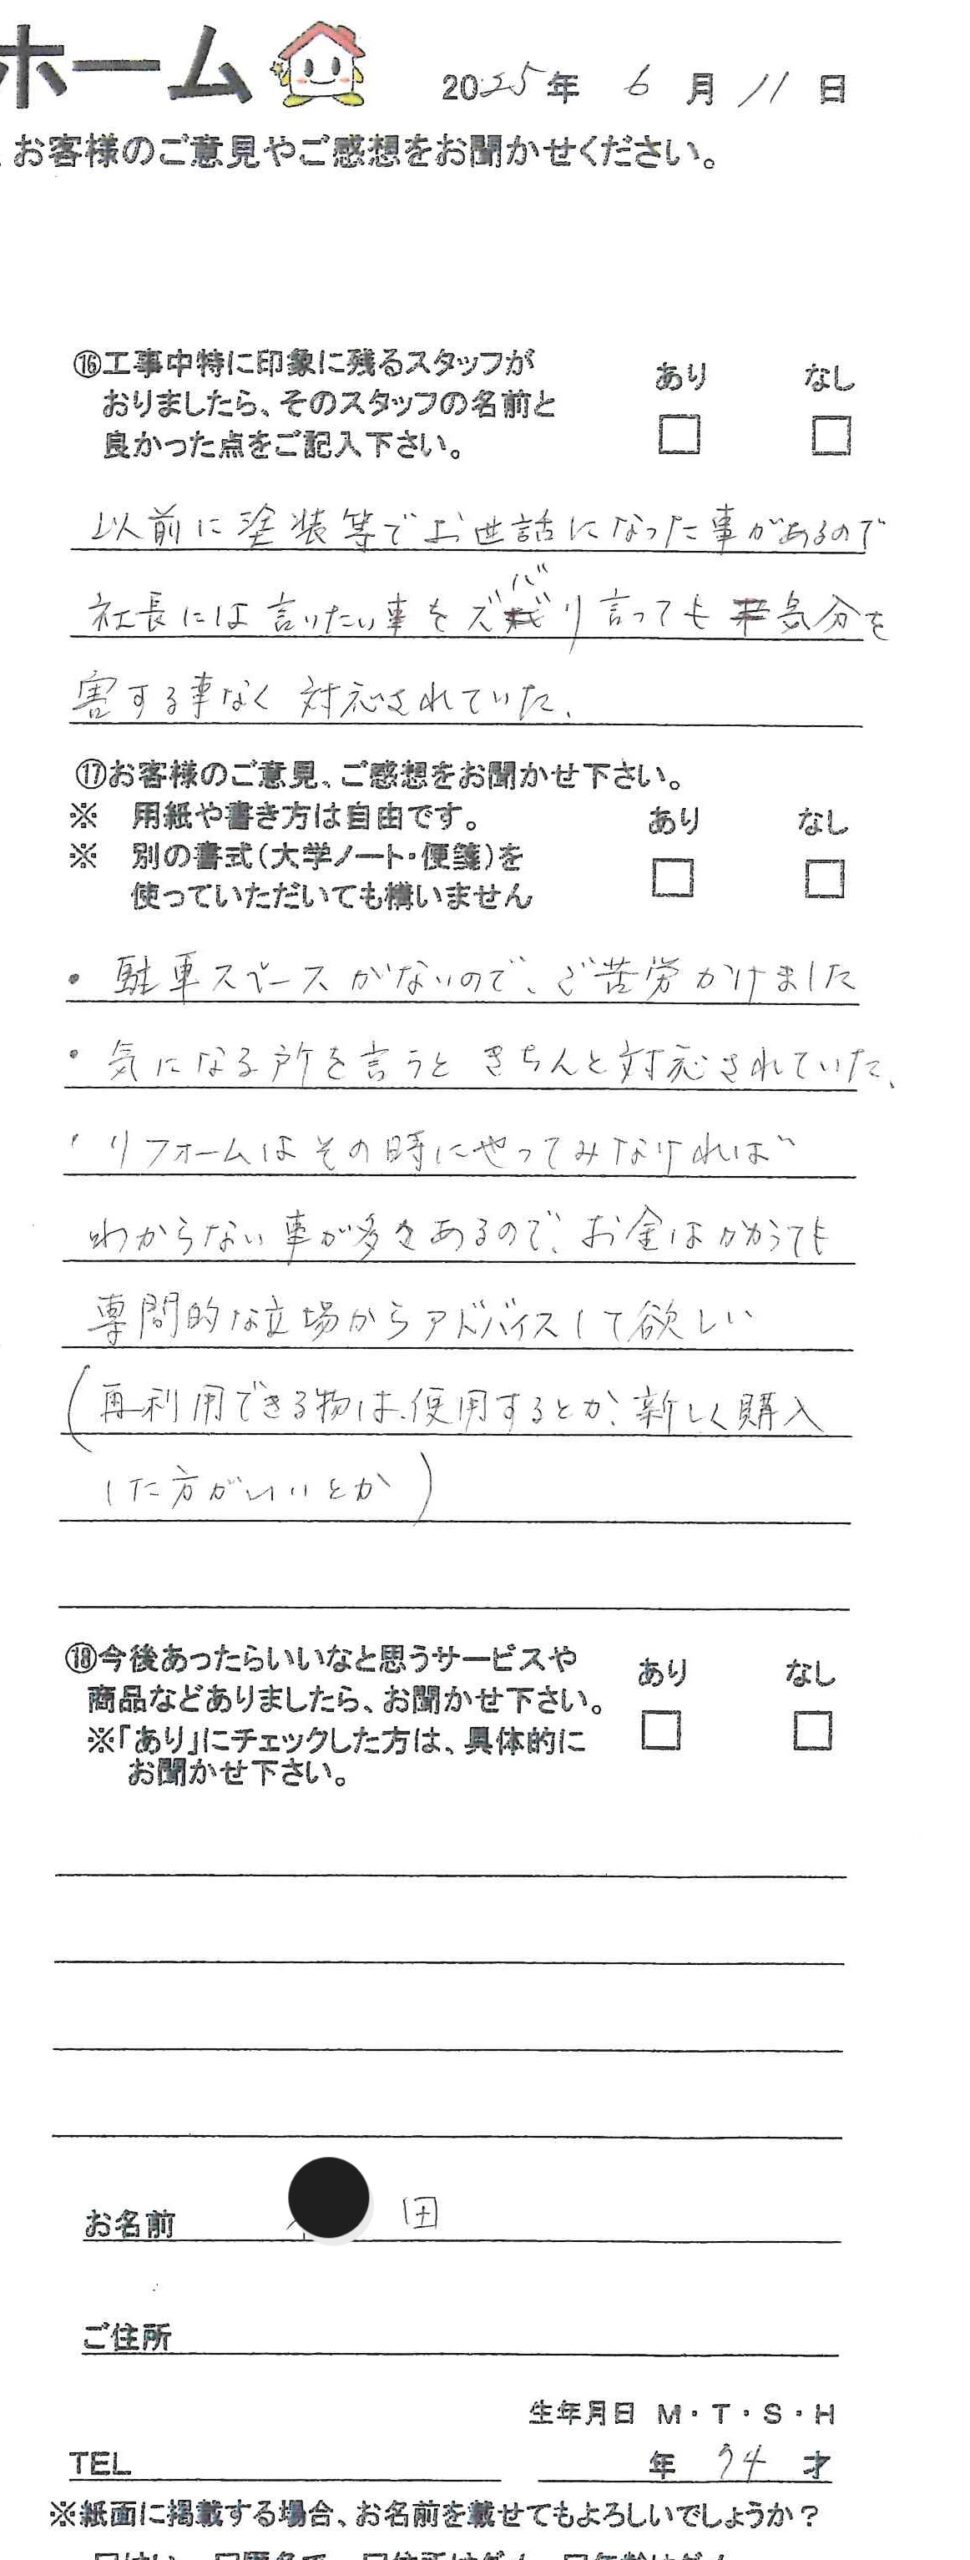 ホーム
2025年 6月 11日
お客様のご意見やご感想をお聞かせください。
⑯工事中特に印象に残るスタッフが
おりましたら、そのスタッフの名前と
良かった点をご記入下さい。
あり なし
以前に塗装等でお世話になった事があるので
社長には言いたい事をズバリ言っても気分を
害する事なく対応されていた。
⑰お客様のご意見、ご感想をお聞かせ下さい。
※ 用紙や書き方は自由です。
※ 別の書式(大学ノート・便箋)を
使っていただいても構いません
あり なし
・駐車スペースがないので、ご苦労かけました
・気になる所を言うときちんと対応されていた、
・リフォームはその時にやってみなければ
わからない事が多きあるので、お金はかかっても
専問的な立場からアドバイスして欲しい
(再利用できる物は、使用するとか、新しく購入
した方がいいとか)
⑱今後あったらいいなと思うサービスや
商品などありましたら、お聞かせ下さい。
※「あり」にチェックした方は、具体的に
お聞かせ下さい。
あり なし
お名前 田
ご住所
生年月日 M・T・S・H
TEL 年 74 才
※紙面に掲載する場合、お名前を載せてもよろしいでしょうか?